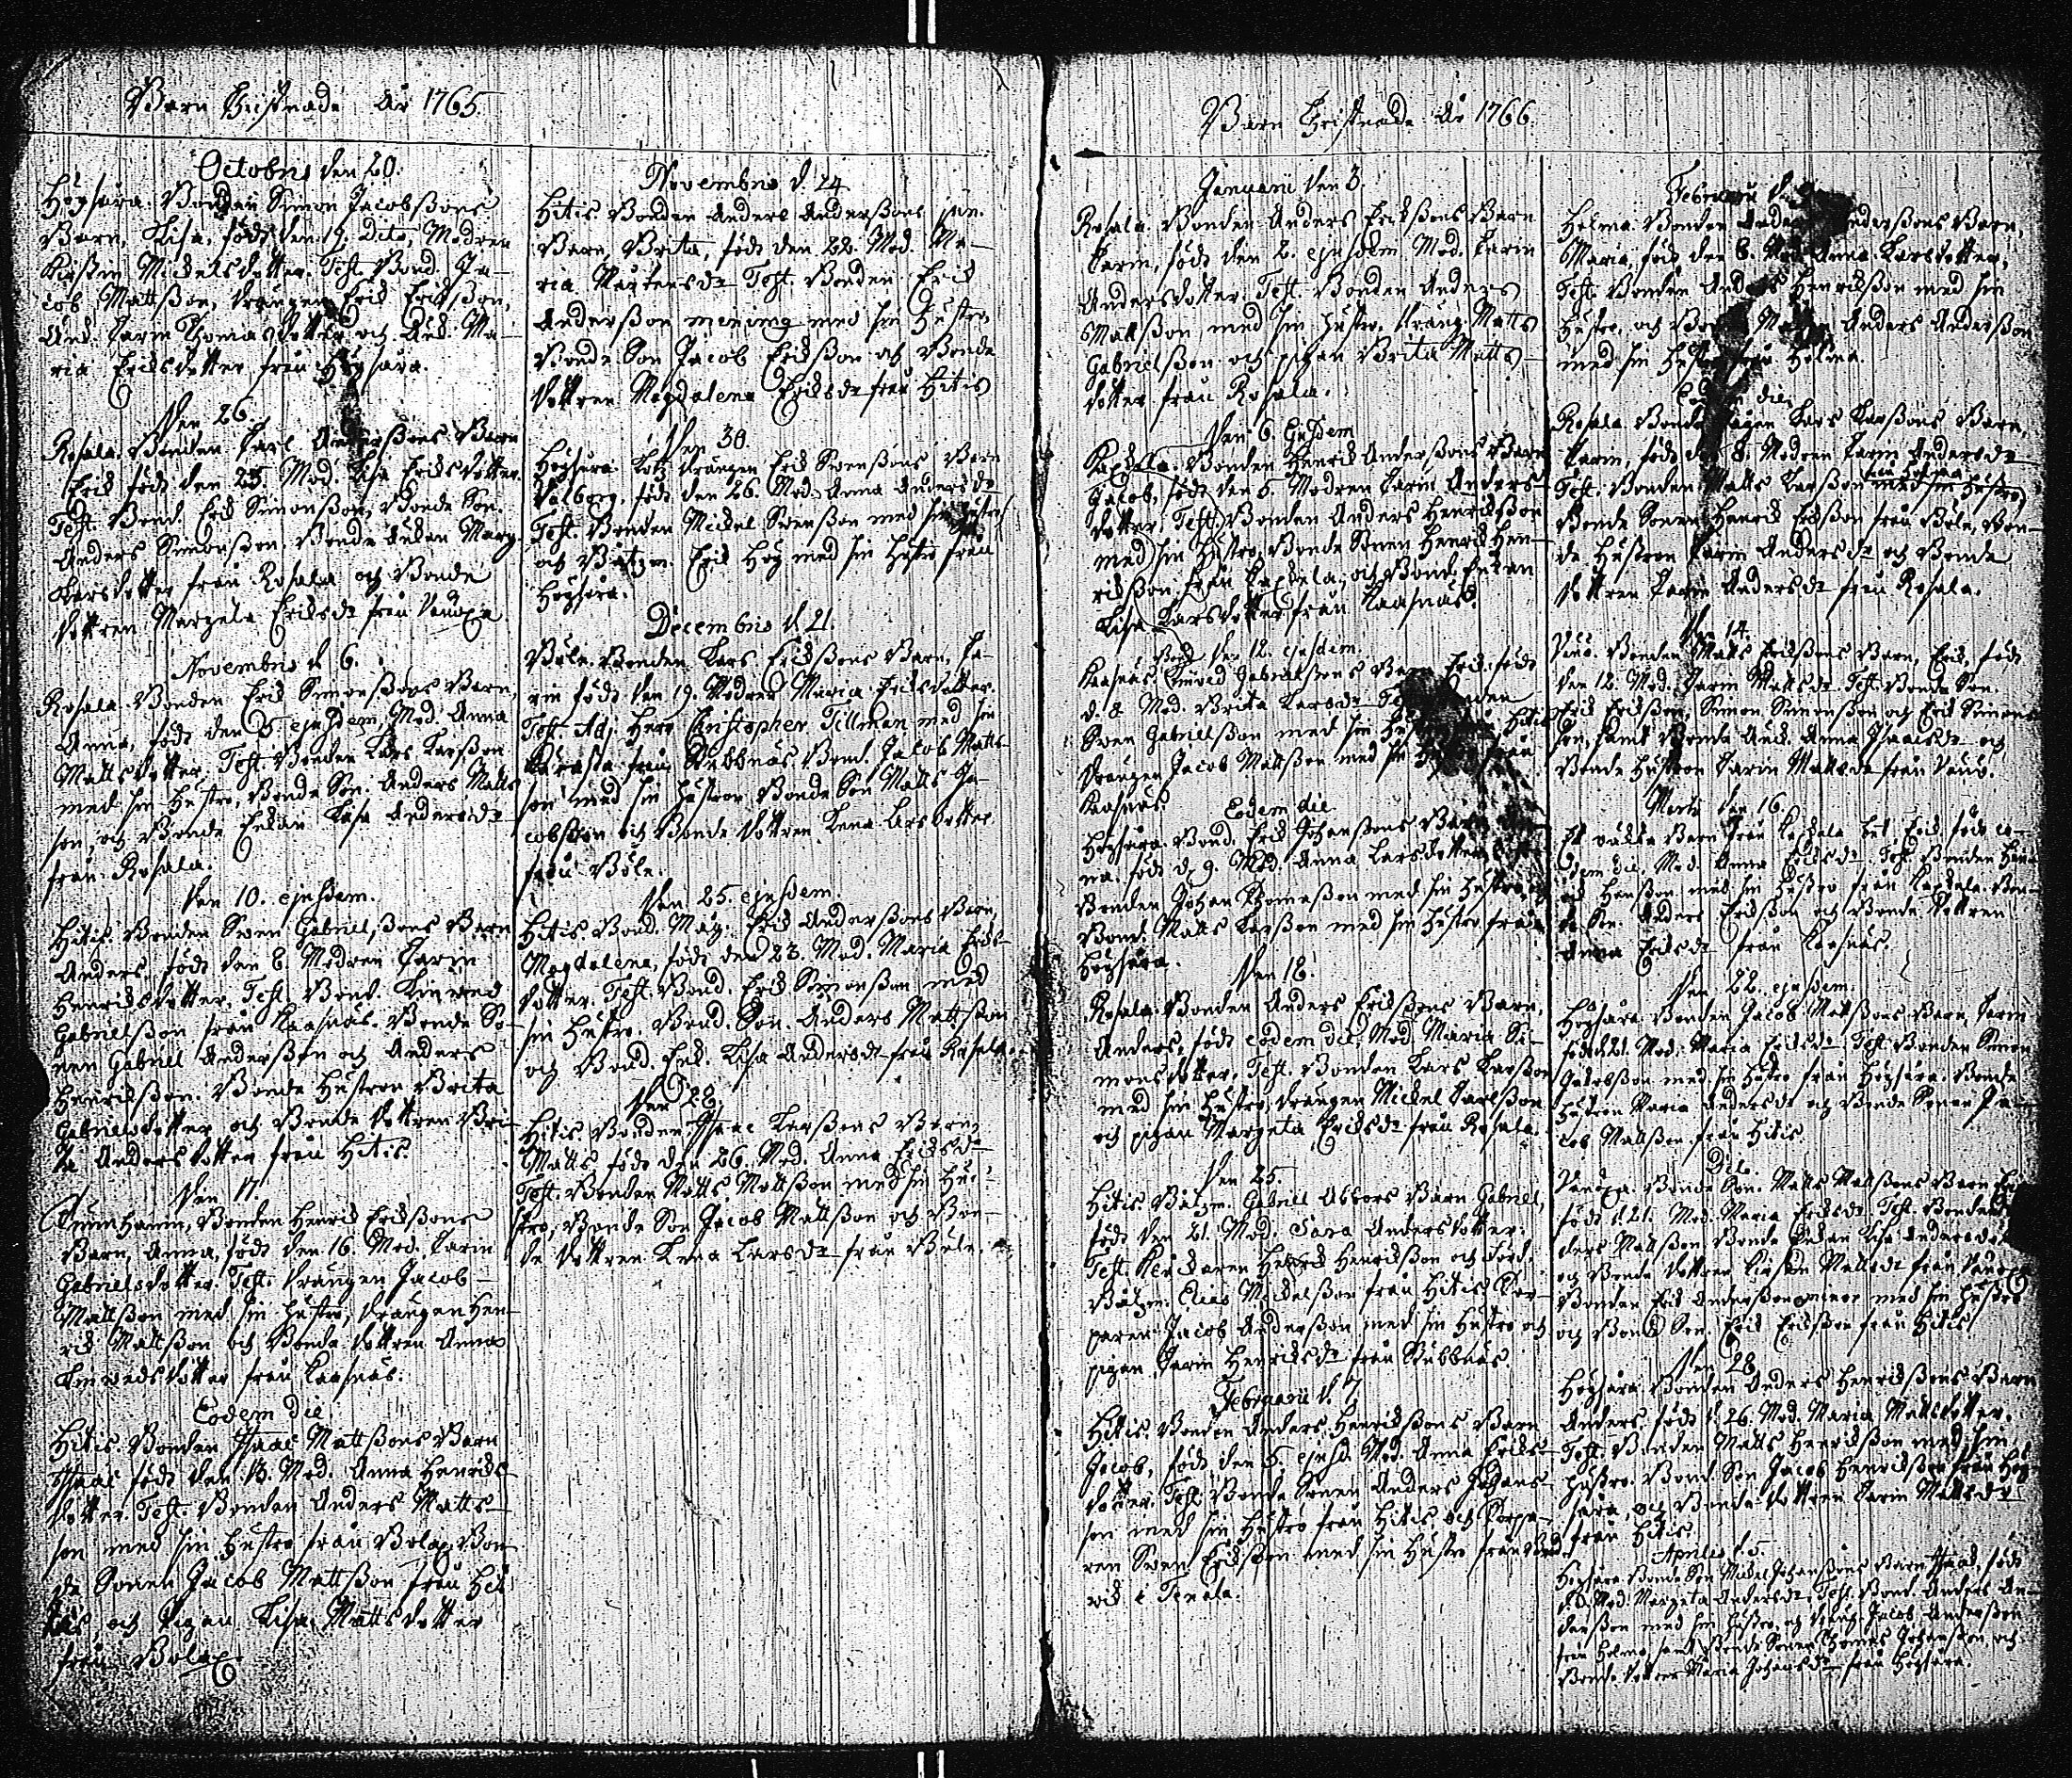 Barn Christnade År 1765.
Octobris den 20.
Högsåra. Bonden Simon Jacobßons
Barn, Lisa, född den 19 Dito, Modren
Kirstin Mickelsdotter. Test. Bond. Ja-
cob Mattßon, Drängen Erik Erikßon,
Enk. Carin Thomasdotter och Enk. Ma-
ria Eriksdotter från Högsåra.
Den 26.
Rosala. Bonden Carl Anderßons Barn
Erik född den 25. Mod. Lisa Eriksdotter.
Test. Bond. Erik Simonßon, Bonde Son.
Anders Simonßon. Bonde Enkan Marg.
Larsdotter från Rosala och Bonde
dottren Margeta Eriksdr från Vänoxa
Novembris d. 6.
Rosala. Bonden Erik Simonßons Barn,
Anna, född den 5 ejusdem, Mod. Anna
Mattsdotter. Test. Bonden Lars Larßon
med sin Hustro, Bonde Son. Anders Matts
son, och Bonde Enkan Lisa Andersdr
från Rosala.
Den 10. ejusdem.
Hitis. Bonden Sven Gabrielßons Barn
Anders, född den 8. Modren Carin
Henriksdotter. Test. Bond. Kinved
Gabrielßon från Kasnäs. Bonde So-
nen Gabriel Anderßon och Anders
Henrikßon. Bonde Hustron Brita
Gabrielsdotter och Bonde dottren Bri-
ta Andersdotter från Hitis.
Den 17.
Tunnhamn, Bonden Henrik Erikßons
Barn, Anna, född den 16. Mod. Carin
Gabrielsdotter. Test. Drängen Jacob
Mattßon med sin Hustro, Drängen Hen-
rik Mattßon och Bonde dottren Anna
Kinvedsdotter från Kasnäs.
Eodem die
Hitis. Bonden Isaac Mattßons Barn
Isaac född den 13. Mod. Anna Henriks-
dotter. Test. Bonden Anders Matts-
son med sin Hustro från Bolax, Bon-
de Sonen Jacob Mattßon från Hit
tis och Pigan Lisa Mattsdotter
från Bolax
Novembris d. 24
Hitis. Bonden Anders Anderßons jun.
Barn, Brita, född den 22. Mod. Ma-
ria Mårtensdr Test. Bonden Erik
Anderßon mening med sin Hustro,
Bonde Son Jacob Erikßon och Bonde
dottren Magdalena Eriksdr från Hitis
Den 30.
Högsåra. Lotz drängen Erik Svenßons Barn
Valborg. född den 26. Mod. Anna Andersdr
Test. Bonden Mickel Svenßon med sin Hustro
och Båtzm. Erik Hög med sin Hustro från
Högsåra.
Decembris d. 21.
Böle. Bonden Lars Erikßons Barn, Ca-
rin född den 19. Modren Maria Eriksdotter.
Test. Adj. Herr Christopher Tillman med sin
Kärasta från Stubbnäs Bond. Jacob Matts-
son med sin Hustron Bonde Son Matts Ja-
cobßon och Bonde dottren Lena Larsdotter
från Böle.
Den 25. ejusdem.
Hitis. Bond. Måg. Erik Anderßons Barn,
Magdalena, född den 23. Mod. Maria Eriks-
dotter. Test. Bond. Erik Simonßon med
sin Hustro. Bond. Son. Anders Mattßon
och Bond. Enk. Lisa Andersdr från Rosala.
Den 28.
Hitis. Bonden Isaac Larßons Barn,
Matts, född den 26. Mod. Anna Eriksdr
Test. Bonden Matts Mattßon med sin Hu-
stro, Bonde Son Jacob Mattßon och Bon-
de dottren Lena Larsdr från Böle.
Barn Christnade År 1766.
Januarii den 3.
Rosala. Bonden Anders Erikßons Barn
Carin, född den 2. ejusdem Mod. Carin
Andersdotter. Test. Bonden Anders
Mattßon, med sin Hustro. Dräng. Matts
Gabrielßon och pigan Brita Matts-
dotter från Rosala.
Den 6. Ejusdem
Bonden Henrik Anderßons Barn
Jacob, född den 5. Modren Carin Anders-
dotter. Test. Bonden Anders Henrikßon
med sin Hustro, Bonde Sonen Henrik Hen-
rikßon från och Bond. Enkan
Lisa Larsdotter från Kaasnäs.
Den 12. ejusdem.
Kaasnäs. Bond. Kinved Gabrielßons Barn Erik född
d. 8 Mod. Brita Larsdr Test. Bonden
Sven Gabrielßon med sin Hitis
Drängen Jacob Mattßon med sin från
Kaasnäs.
Eodem die
Högsåra. Bond. Erik Johanßons Barn
na. född d. 9. Mod. Anna Larsdotter
Bonden Johan Thomaßon med sin Hustro
Bond. Matts Larßon med sin Hustro från
Högsåra.
Den 18.
Rosala. Bonden Anders Erikßons Barn,
Anders, född eodem die, Mod. Maria Si-
monsdotter. Test. Bonden Lars Larßon
med sin Hustro, Drängen Mickel Carlßon
och pigan Margeta Eriksdr från Rosala.
Den 25.
Hitis. Båtzm. Gabriel Abbors Barn Gabriel,
född den 21. Mod. Sara Andersdotter.
Test. Henrik Henrikßon och Förd.
Båtzm. Elias Mickelßon från Hitis. Tor-
paren Jacob Anderßon med sin Hustro och
pigan Carin Henriksdr från Stubbnäs.
Februarii d. 7.
Hitis. Bonden Anders Henrikßons Barn
Jacob, född den 5. ejusd. Mod. Anna Eriks-
dotter. Test. Bonde Sonen Anders Johans-
son med sin Hustro från Hitis och Torpa-
ren Sven Erikßon med sin Hustro från
vik i Tenala.
Februarii d.
Holma. Bonden Anderßons Barn,
Maria, född den 8. Mod. Anna Larsdotter,
Test. Bonden Anders Henrikßon med sin
Hustro, och Anders Anderßon
med sin Hustro från Holma.
Eodem die.
Rosala. Bonde Mågen Lars Larßons Barn,
Carin, född d. 8. Modren Carin Andersdr
Test. Bonden Matts Larßon från Holma med sin Hustro
Bonde Sonen Henrik Erikßon från Böle, Bon-
de Hustron Carin Andersdr och Bonde
dottren Carin Andersdr från Rosala.
Den 14.
Vänö. Bonden Matts Erikßons Barn, Erik, född
den 12. Mod. Carin Mattsdr. Test. Bonde Son.
Erik Erikßon, Simon Simonßon och Erik Simons-
son, samt Bonde Enk. Anna Isaacsdr och
Bonde Hustron Carin Mattsdr från Vänö.
Martii den 16.
Et oäkta Barn från bet Erik född eo-
dem die, Mod. Anna Eriksdr. Test. Bonden Hen-
rik Henßon med sin Hustro från Bon-
de Son. Anders Erikßon och Bonde dottren
Anna Eriksdr från Kaasnäs.
Den 22. ejusdem.
Högsåra. Bonden Jacob Mattßons Barn, Carin
född d. 21. Mod. Maria Eriksdr. Test. Bonden Simon
Jacobßon med sin Hustro från Högsåra. Bonde
Hustron Maria Andersdr och Bonde Sonen Ja-
cob Mattßon från Hitis.
Dito.
Vänoxa. Bonde Son. Matts Mattßons Barn
född d. 21. Mod. Maria Eriksdr. Test. Bonden
ders Mattßon. Bonde Enkan Lisa Andersdr
och Bonde dottren Kirstin Mattsdr från Vänoxa
Bonden Erik Anderßon minor med sin Hustro
och Bonde Son. Erik Erikßon från Hitis
Den 28.
Högsåra. Bonden Anders Henrikßons Barn
Anders född d. 26. Mod. Maria Mattsdotter.
Test. Bonden Matts Henrikßon med sin
Hustro. Bond. Son Jacob Henrikßon från Hög-
såra, och Bonde dottren Carin Mattsdr
från Hitis
Aprilis d. 5.
Högsåra. Bonde Son Mickel Johanßons Barn Isaac, född
Mod. Margeta Andersdr. Test. Bond. Anders An-
derßon med sin Hustro, och Dräng. Jacob Anderßon
från Holma, samt Bonde Sonen Thomas Johanßon och
Bonde dottren Maria Johansdr från Högsåra.